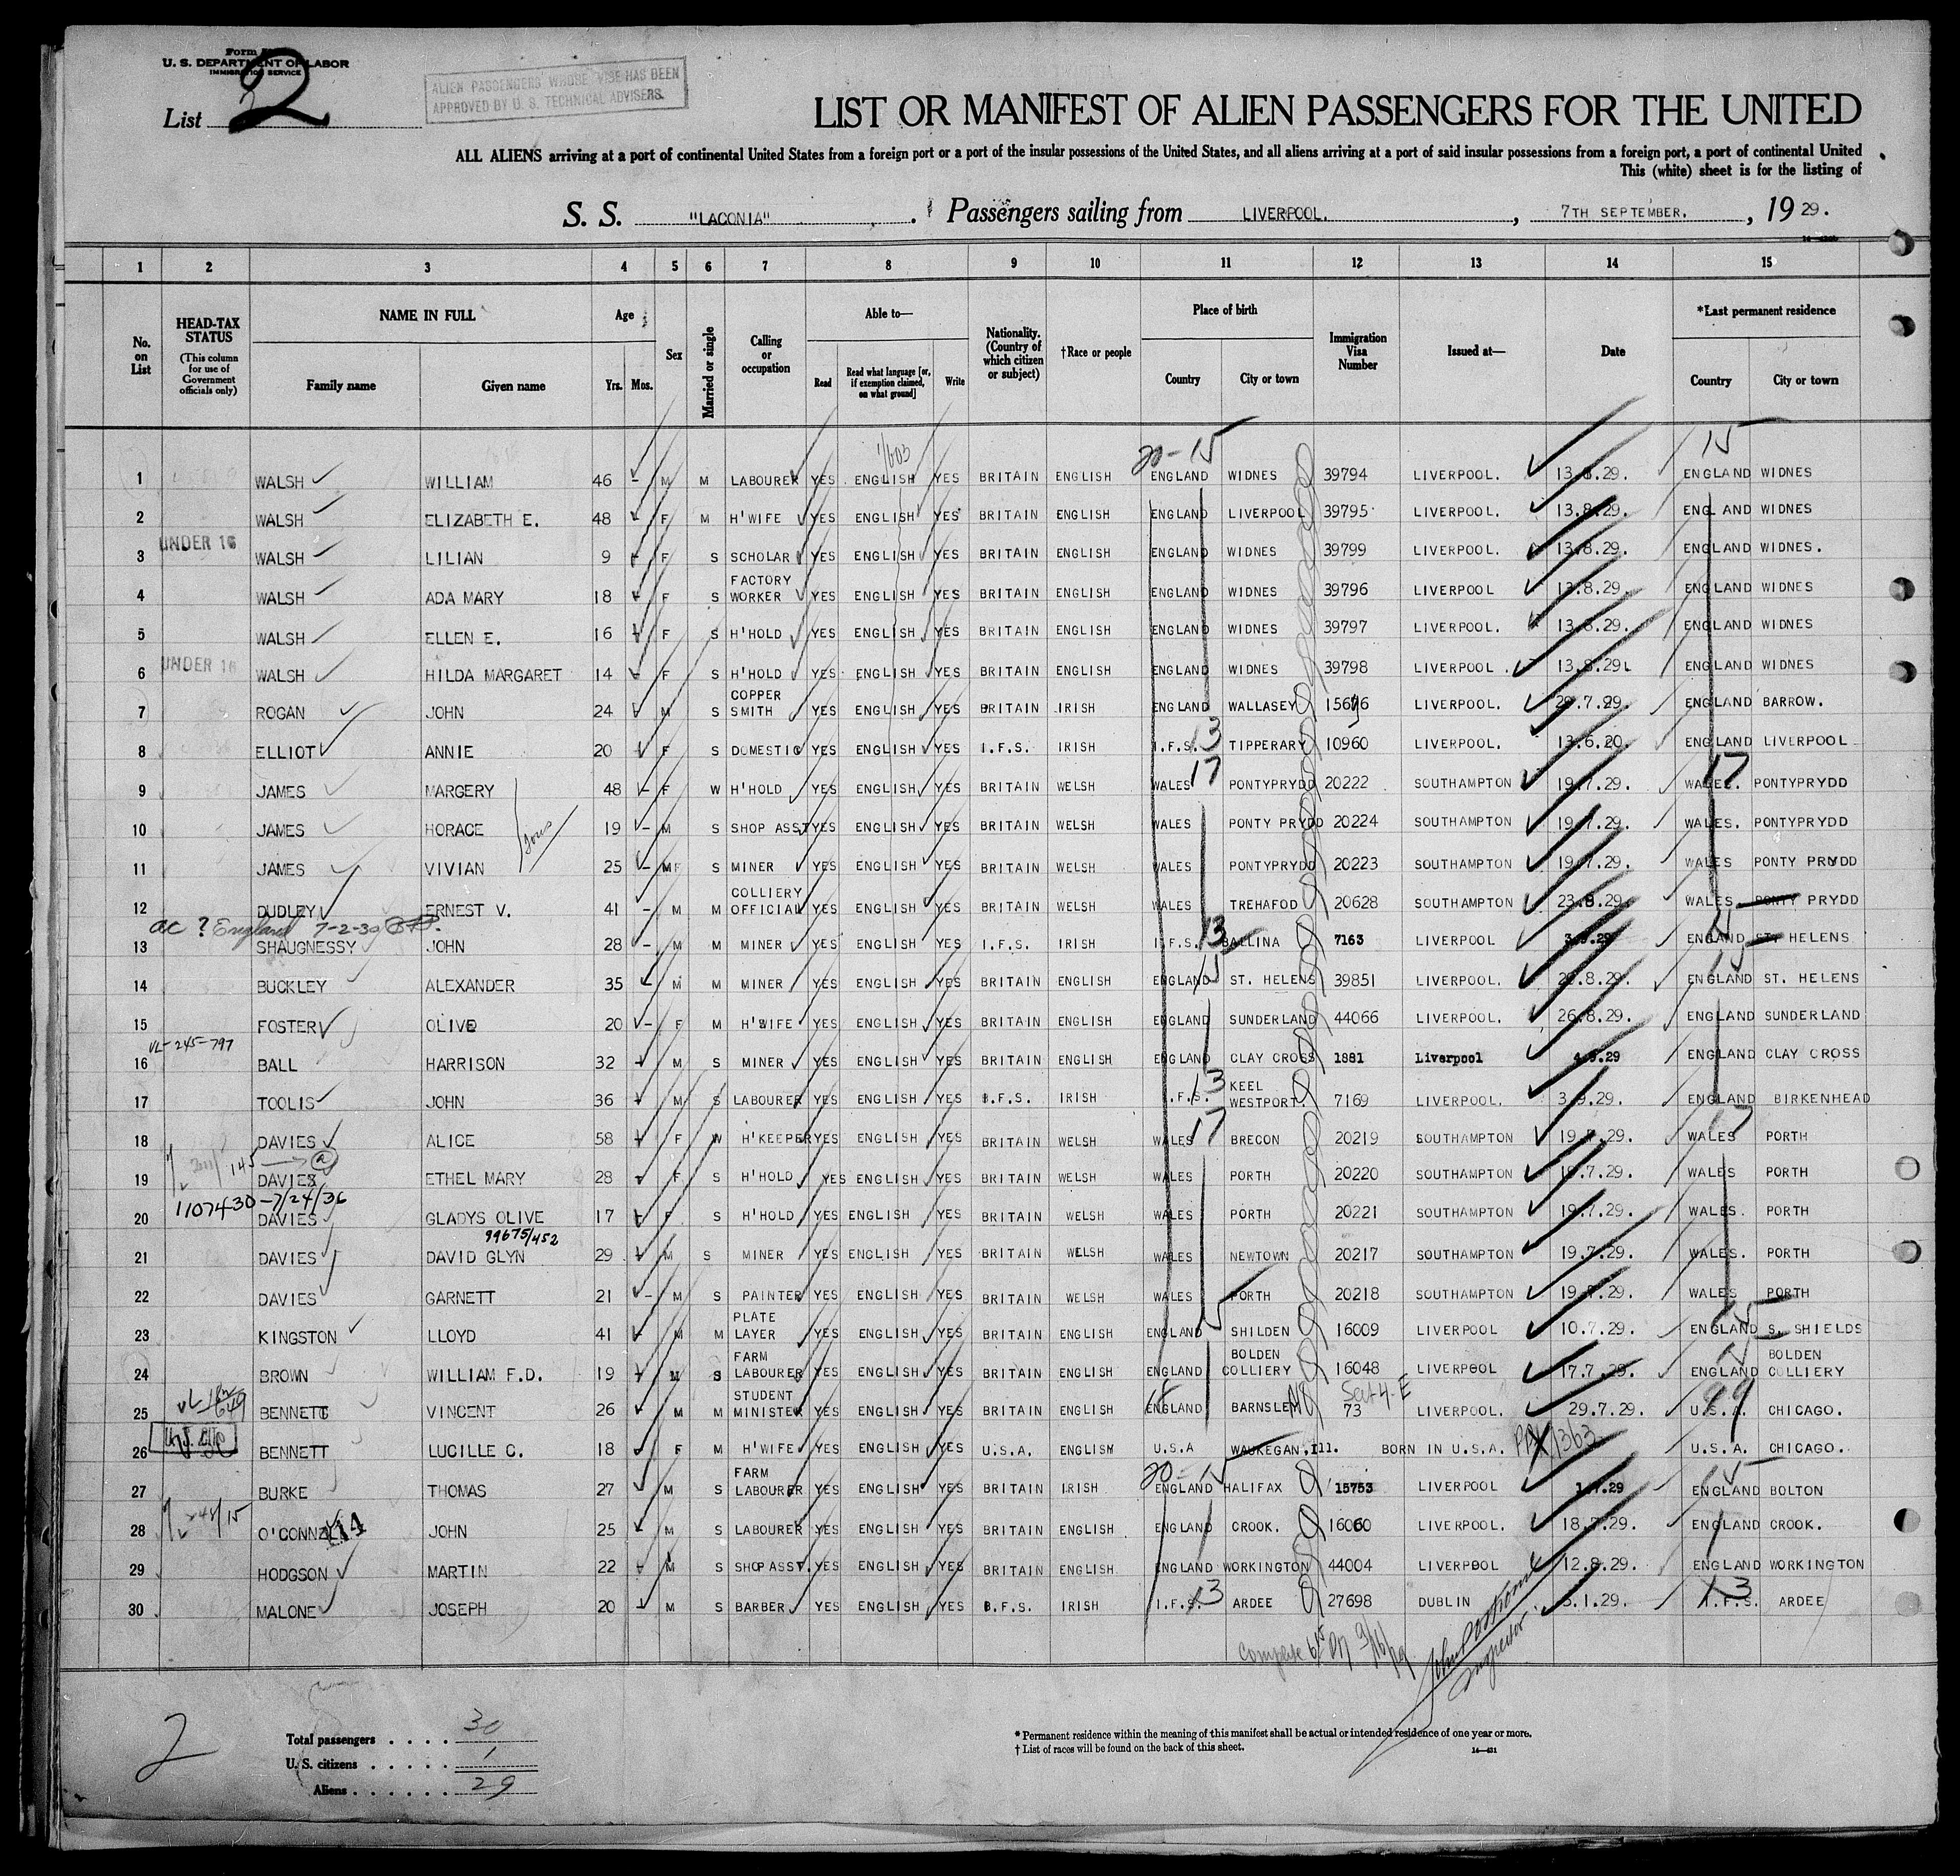 Form
U. S. DEPARTMENT OF LABOR
IMMIGRATION SERVICE
List 2
ALIEN PASSENGERS WHOSE VISE HAS BEEN
APPROVED BY U. S. TECHNICAL ADVISERS.
LIST OR MANIFEST OF ALIEN PASSENGERS FOR THE UNITED
ALL ALIENS arriving at a port of continental United States from a foreign port or a port of the insular possessions of the United States, and all aliens arriving at a port of said insular possessions from a foreign port, a port of continental United
This (white) sheet is for the listing of
S. S. "LACONIA" . Passengers sailing from LIVERPOOL. , 7TH SEPTEMBER. , 19 29.
1 2 3 4 5 6 7 8 9 10 11 12 13 14 15
No. on List
HEAD-TAX STATUS (This column for use of Government officials only)
NAME IN FULL
Family name Given name
Age
Yrs. Mos.
Sex
Married or single
Calling or occupation
Able to—
Read Read what language [or, if exemption claimed, on what ground] Write
Nationality. (Country of which citizen or subject)
†Race or people
Place of birth
Country City or town
Immigration Visa Number
Issued at—
Date
*Last permanent residence
Country City or town
20-15 15
1 WALSH WILLIAM 46 - M M LABOURER YES ENGLISH YES BRITAIN ENGLISH ENGLAND WIDNES 39794 LIVERPOOL. 13.8.29. ENGLAND WIDNES
2 WALSH ELIZABETH E. 48 - F M H'WIFE YES ENGLISH YES BRITAIN ENGLISH ENGLAND LIVERPOOL 39795 LIVERPOOL. 13.8.29. ENGLAND WIDNES
UNDER 16
3 WALSH LILIAN 9 - F S SCHOLAR YES ENGLISH YES BRITAIN ENGLISH ENGLAND WIDNES 39799 LIVERPOOL. 13.8.29. ENGLAND WIDNES.
4 WALSH ADA MARY 18 - F S FACTORY WORKER YES ENGLISH YES BRITAIN ENGLISH ENGLAND WIDNES 39796 LIVERPOOL 13.8.29. ENGLAND WIDNES
5 WALSH ELLEN E. 16 - F S H'HOLD YES ENGLISH YES BRITAIN ENGLISH ENGLAND WIDNES 39797 LIVERPOOL. 13.8.29. ENGLAND WIDNES
UNDER 16
6 WALSH HILDA MARGARET 14 - F S H'HOLD YES ENGLISH YES BRITAIN ENGLISH ENGLAND WIDNES 39798 LIVERPOOL. 13.8.29. ENGLAND WIDNES
7 ROGAN JOHN 24 - M S COPPER SMITH YES ENGLISH YES BRITAIN IRISH ENGLAND WALLASEY LIVERPOOL. 29.7.29. ENGLAND BARROW.
8 ELLIOT ANNIE 20 - F S DOMESTIC YES ENGLISH YES I.F.S. IRISH I.F.S. 13 TIPPERARY 10960 LIVERPOOL. 13.6.20. ENGLAND LIVERPOOL
9 JAMES MARGERY 48 - F W H'HOLD YES ENGLISH YES BRITAIN WELSH WALES 17 PONTYPRYDD 20222 SOUTHAMPTON 19.7.29. WALES. 17 PONTYPRYDD
10 JAMES HORACE Sons 19 - M S SHOP ASST YES ENGLISH YES BRITAIN WELSH WALES PONTY PRYDD 20224 SOUTHAMPTON 19.7.29. WALES. PONTYPRYDD
11 JAMES VIVIAN 25 - M S MINER YES ENGLISH YES BRITAIN WELSH WALES PONTYPRYDD 20223 SOUTHAMPTON 19.7.29. WALES PONTY PRYDD
12 DUDLEY ERNEST V. 41 - M M COLLIERY OFFICIAL YES ENGLISH YES BRITAIN WELSH WALES TREHAFOD 20628 SOUTHAMPTON 23.8.29. WALES PONTY PRYDD
ac ? England 7-2-30
13 SHAUGNESSY JOHN 28 - M M MINER YES ENGLISH YES I.F.S. IRISH I.F.S. 13 BALLINA 7163 LIVERPOOL 3.9.29 ENGLAND ST. HELENS
14 BUCKLEY ALEXANDER 35 - M M MINER YES ENGLISH YES BRITAIN ENGLISH ENGLAND 15 ST. HELENS 39851 LIVERPOOL. 29.8.29. ENGLAND 15 ST. HELENS
15 FOSTER OLIVE 20 - F M H'WIFE YES ENGLISH YES BRITAIN ENGLISH ENGLAND SUNDERLAND 44066 LIVERPOOL. 26.8.29. ENGLAND SUNDERLAND
VL-245-797
16 BALL HARRISON 32 - M S MINER YES ENGLISH YES BRITAIN ENGLISH ENGLAND CLAY CROSS 1881 Liverpool 4.9.29 ENGLAND CLAY CROSS
17 TOOLIS JOHN 36 - M S LABOURER YES ENGLISH YES I.F.S. IRISH I.F.S. 13 KEEL WESTPORT. 7169 LIVERPOOL. 3.9.29. ENGLAND BIRKENHEAD
18 DAVIES ALICE 58 - F W H'KEEPER YES ENGLISH YES BRITAIN WELSH WALES 17 BRECON 20219 SOUTHAMPTON 19.7.29. WALES 17 PORTH
145 a
19 DAVIES ETHEL MARY 28 - F S H'HOLD YES ENGLISH YES BRITAIN WELSH WALES PORTH 20220 SOUTHAMPTON 19.7.29. WALES PORTH
1107430-7/24/36
20 DAVIES GLADYS OLIVE 17 - F S H'HOLD YES ENGLISH YES BRITAIN WELSH WALES PORTH 20221 SOUTHAMPTON 19.7.29. WALES. PORTH
99675/452
21 DAVIES DAVID GLYN 29 - M S MINER YES ENGLISH YES BRITAIN WELSH WALES NEWTOWN 20217 SOUTHAMPTON 19.7.29. WALES. PORTH
22 DAVIES GARNETT 21 - M S PAINTER YES ENGLISH YES BRITAIN WELSH WALES PORTH 20218 SOUTHAMPTON 19.7.29. WALES PORTH
23 KINGSTON LLOYD 41 - M M PLATE LAYER YES ENGLISH YES BRITAIN ENGLISH ENGLAND 15 SHILDEN 16009 LIVERPOOL 10.7.29. ENGLAND 15 S. SHIELDS
24 BROWN WILLIAM F.D. 19 - M S FARM LABOURER YES ENGLISH YES BRITAIN ENGLISH ENGLAND BOLDEN COLLIERY 16048 LIVERPOOL 17.7.29. ENGLAND 15 BOLDEN COLLIERY
25 BENNETT VINCENT 26 M M STUDENT MINISTER YES ENGLISH YES BRITAIN ENGLISH ENGLAND BARNSLEY NQ Sect 4-E 73 LIVERPOOL. 29.7.29. U.S.A. 99 CHICAGO.
26 BENNETT LUCILLE C. 18 F M H'WIFE YES ENGLISH YES U.S.A. ENGLISH U.S.A WAUKEGAN, Ill. BORN IN U.S.A. 1363 U.S.A. CHICAGO.
20-15 15
27 BURKE THOMAS 27 M S FARM LABOURER YES ENGLISH YES BRITAIN IRISH ENGLAND HALIFAX 15753 LIVERPOOL 1.7.29 ENGLAND BOLTON
28 O'CONNELL 14 JOHN 25 - M S LABOURER YES ENGLISH YES BRITAIN ENGLISH ENGLAND CROOK. 16060 LIVERPOOL. 18.7.29. ENGLAND CROOK.
29 HODGSON MARTIN 22 - M S SHOP ASST. YES ENGLISH YES BRITAIN ENGLISH ENGLAND WORKINGTON 44004 LIVERPOOL 12.8.29. ENGLAND WORKINGTON
30 MALONE JOSEPH 20 - M S BARBER YES ENGLISH YES I.F.S. IRISH I.F.S. 13 ARDEE 27698 DUBLIN 3.1.29. I.F.S. 13 ARDEE
Complete 9/16/29
Inspector
2
Total passengers . . . . 30
U. S. citizens . . . . . 1
Aliens . . . . . . 29
* Permanent residence within the meaning of this manifest shall be actual or intended residence of one year or more.
† List of races will be found on the back of this sheet.
14—431